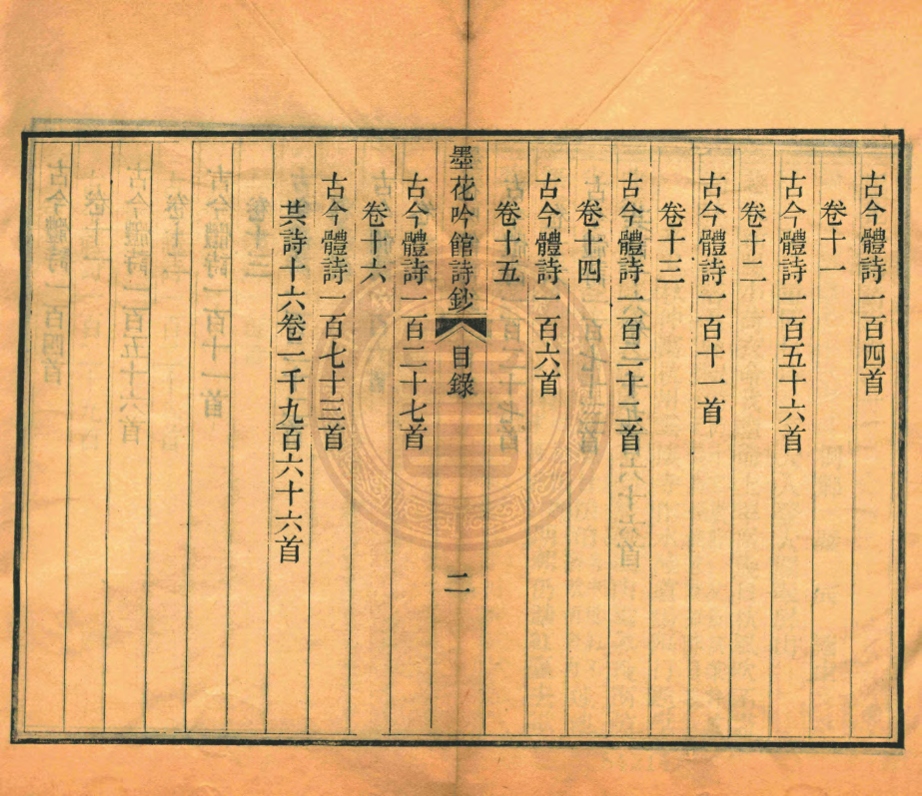 古今體詩一百四首
卷十一
古今體詩一百五十六首
卷十二
古今體詩一百十一首
卷十三
古今體詩一百二十二首
卷十四
古今體詩一百六首
卷十五
墨花吟館詩鈔 目錄 二
古今體詩一百二十七首
卷十六
古今體詩一百七十三首
共詩十六卷一千九百六十六首